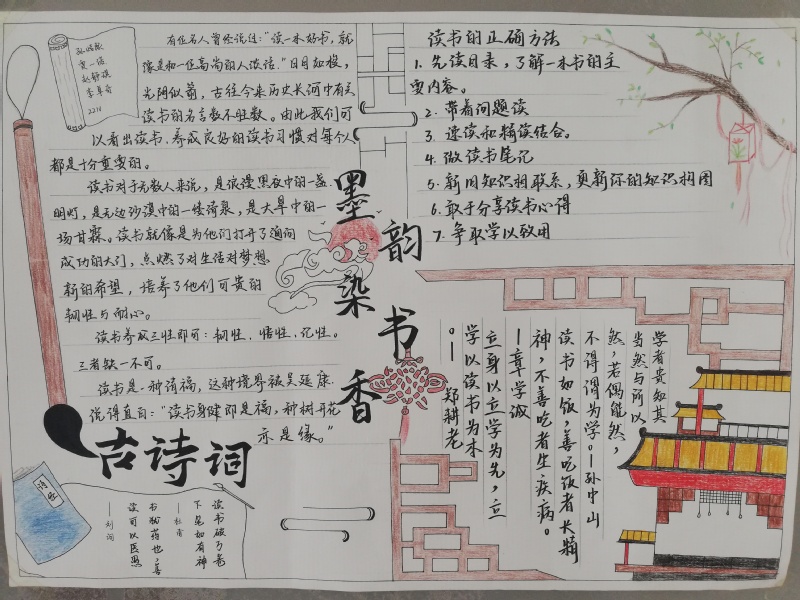 有位名人曾经说过:"读一本好书,就
像是和一位高尚的人谈话。"日月如梭,
光阴似箭,古往今来历史长河中有关
读书的名言数不胜数。由此我们可
以看出读书、养成良好的读书习惯对每个人
都是十分重要的。
读书对于无数人来说,是浪漫黑夜中的一盏
明灯,是无边沙漠中的一缕清泉,是大旱中的一
场甘霖。读书就像是为他们打开了通向
成功的大门,点燃了对生活对梦想
新的希望,培养了他们可贵的
韧性与耐心。
读书养成三性即可:韧性,悟性,记性。
三者缺一不可。
读书是一种清福,这种境界被吴延康
说得直白:"读书身健即是福,种树开花
亦是缘。"
墨韵染书香
读书的正确方法
1. 先读目录,了解一本书的主
要内容。
2. 带着问题读
3. 速读和精读结合。
4. 做读书笔记
5. 新旧知识相联系,更新你的知识构图
6. 敢于分享读书心得
7. 争取学以致用
学者贵知其
当然与所以
然,若偶能然,
不得谓为学。—孙中山
读书如饭,善吃饭者长精
神,不善吃者生疾病。
—章学诚
立身以立学为先,立
学以读书为本
。— 郑耕老
古诗词
诗经
读书破万卷
下笔如有神
—杜甫
书犹药也,善
读可以医愚
—刘向